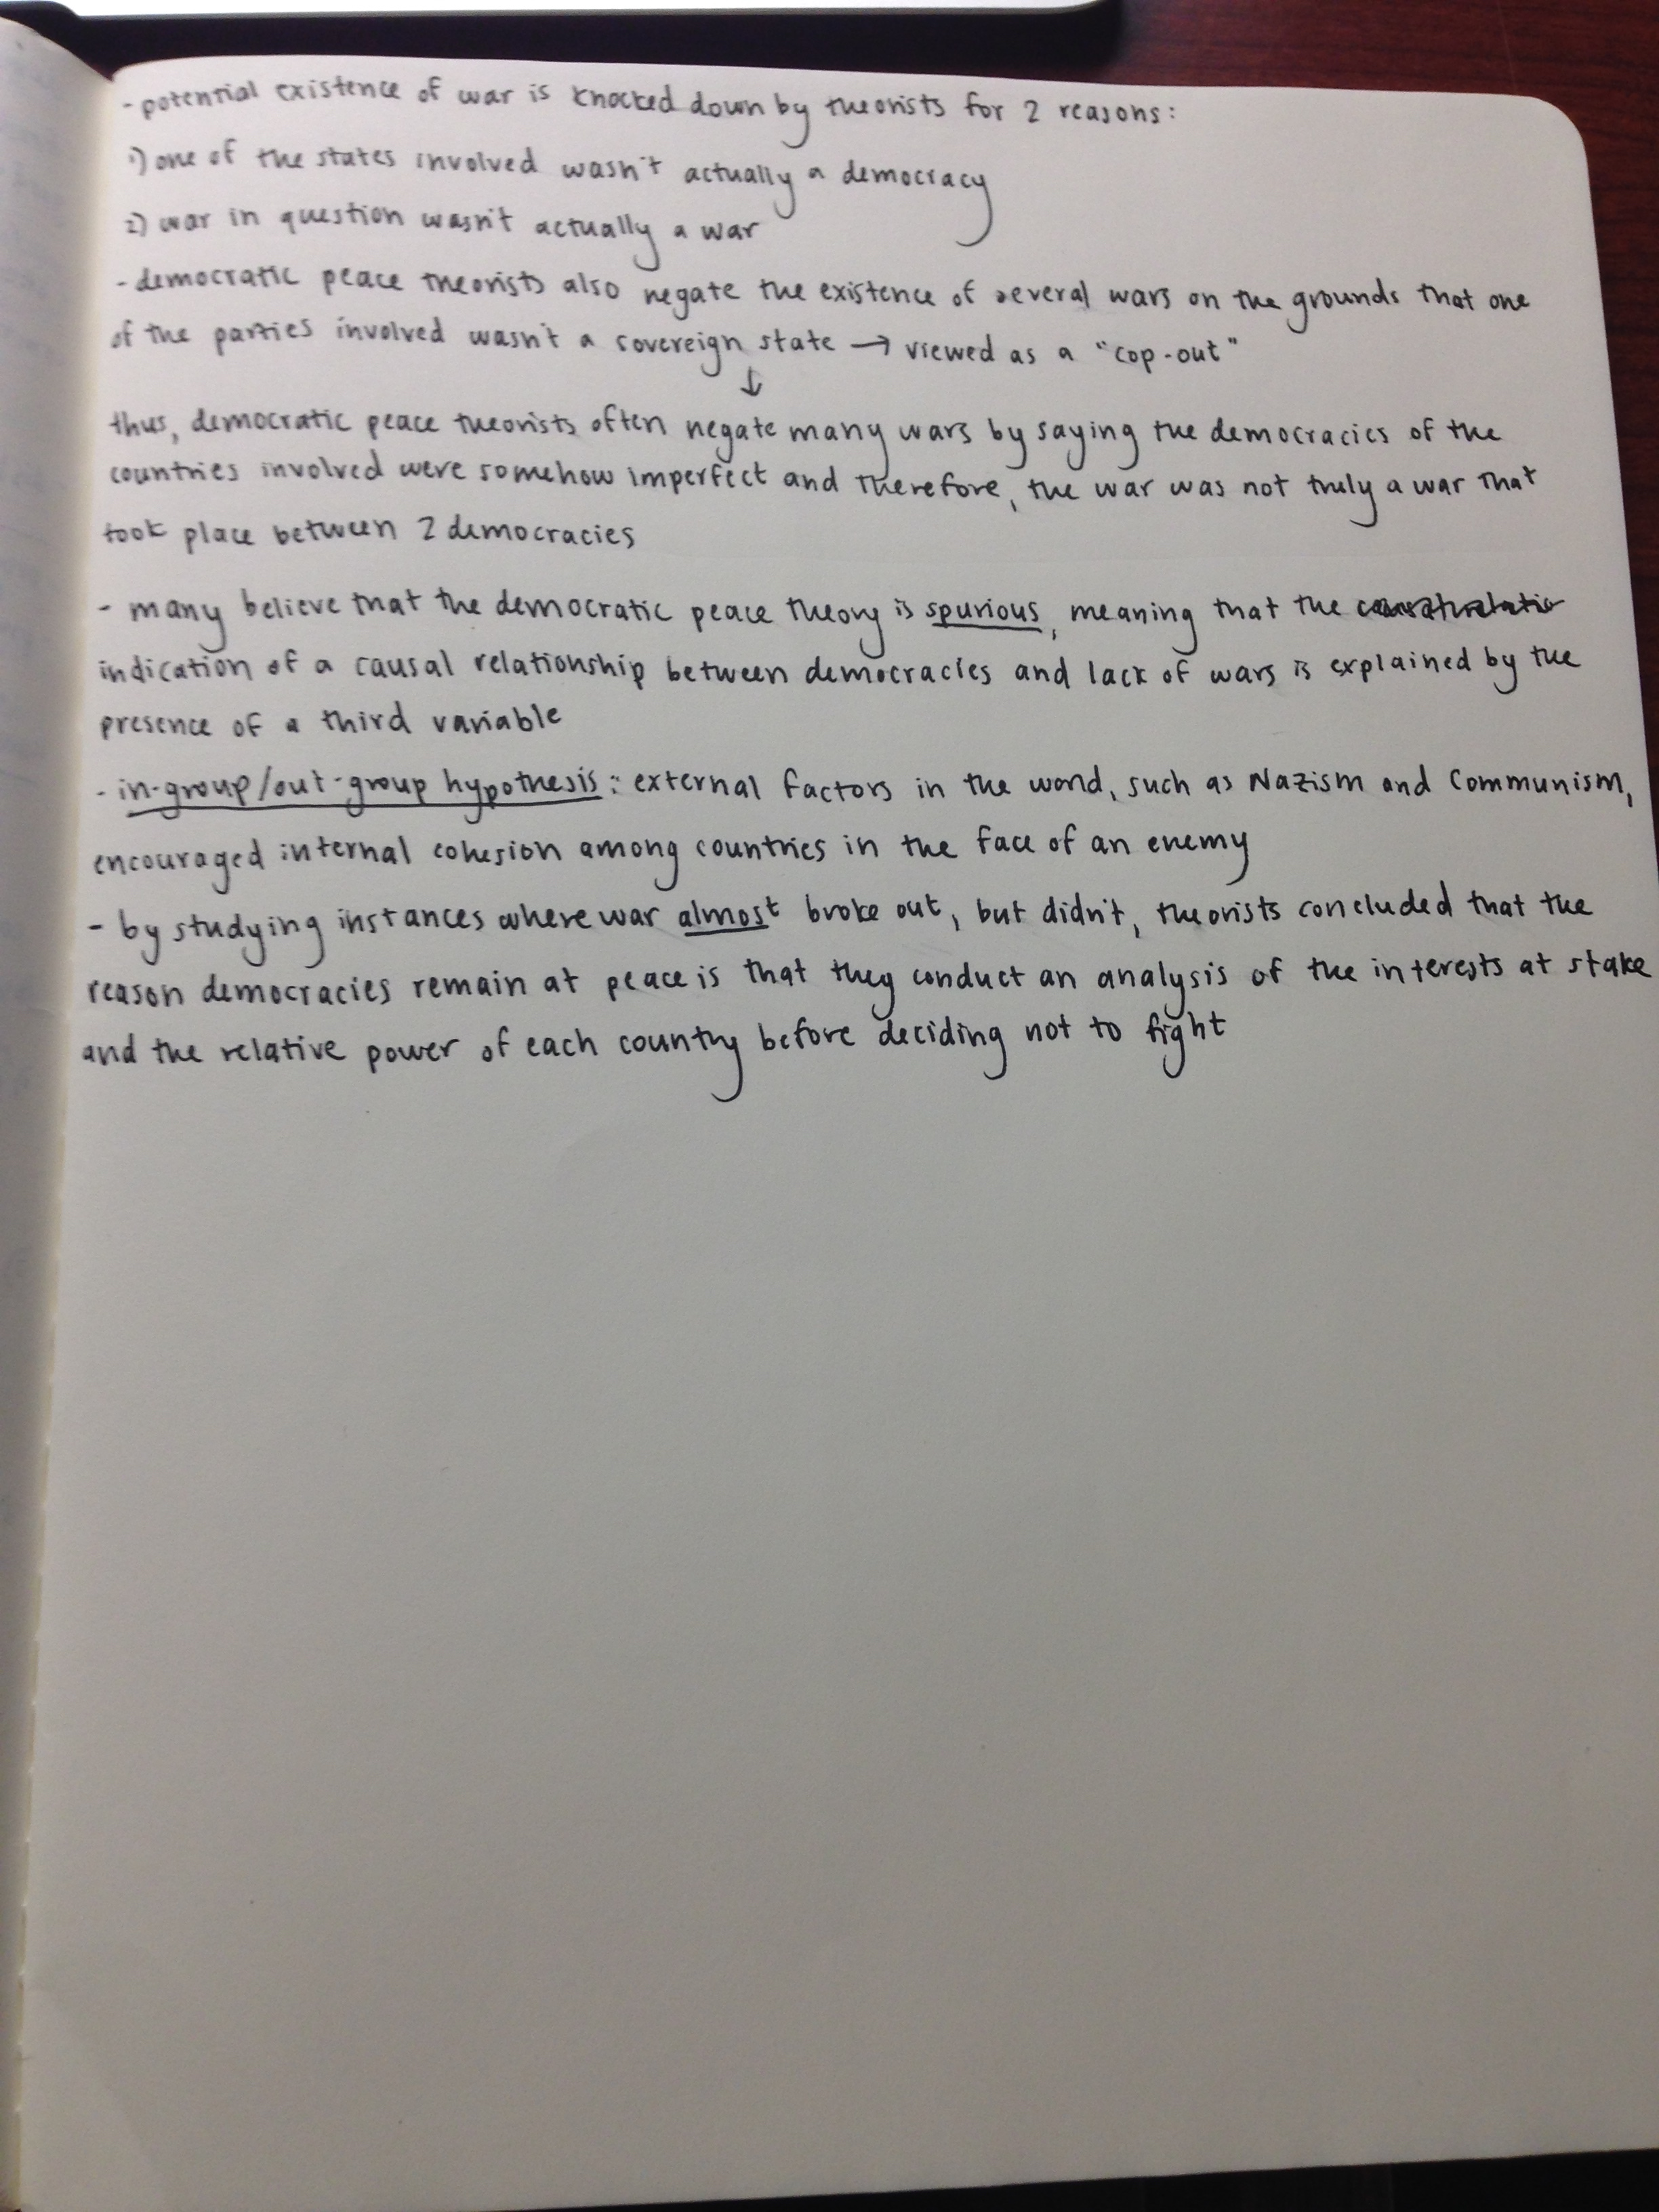 - potential existence of war is knocked down by theorists for 2 reasons:
1) one of the states involved wasn't actually a democracy
2) war in question wasn't actually a war
- democratic peace theorists also negate the existence of several wars on the grounds that one
of the parties involved wasn't a sovereign state → viewed as a "cop-out"
↓
thus, democratic peace theorists often negate many wars by saying the democracies of the
countries involved were somehow imperfect and therefore, the war was not truly a war that
took place between 2 democracies
- many believe that the democratic peace theory is spurious, meaning that the
indication of a causal relationship between democracies and lack of wars is explained by the
presence of a third variable
- in-group/out-group hypothesis: external factors in the world, such as Nazism and Communism,
encouraged internal cohesion among countries in the face of an enemy
- by studying instances where war almost broke out, but didn't, theorists concluded that the
reason democracies remain at peace is that they conduct an analysis of the interests at stake
and the relative power of each country before deciding not to fight